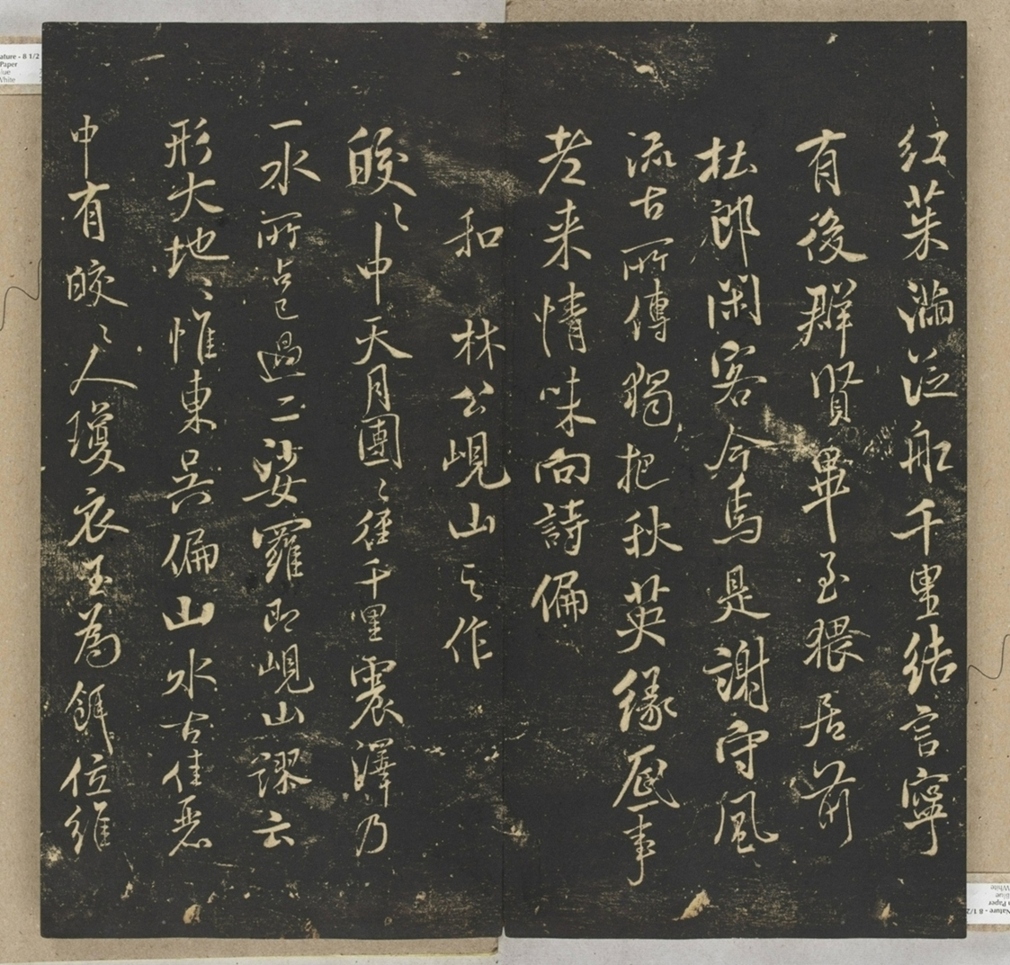 紅茱滿泛船千里結言寧
有後群賢畢至猥居前
杜郎閑客今焉是謝守風
流古所傳獨把秋英緣底事
老来情味向詩偏
和林公峴山之作
皎〻中天月團〻徑千里震澤乃
一水所占已過二娑羅即峴山謬云
形大地〻惟東吳偏山水古佳麗
中有皎〻人瓊衣玉為餌位維
ature - 8 1/2
Paper
White